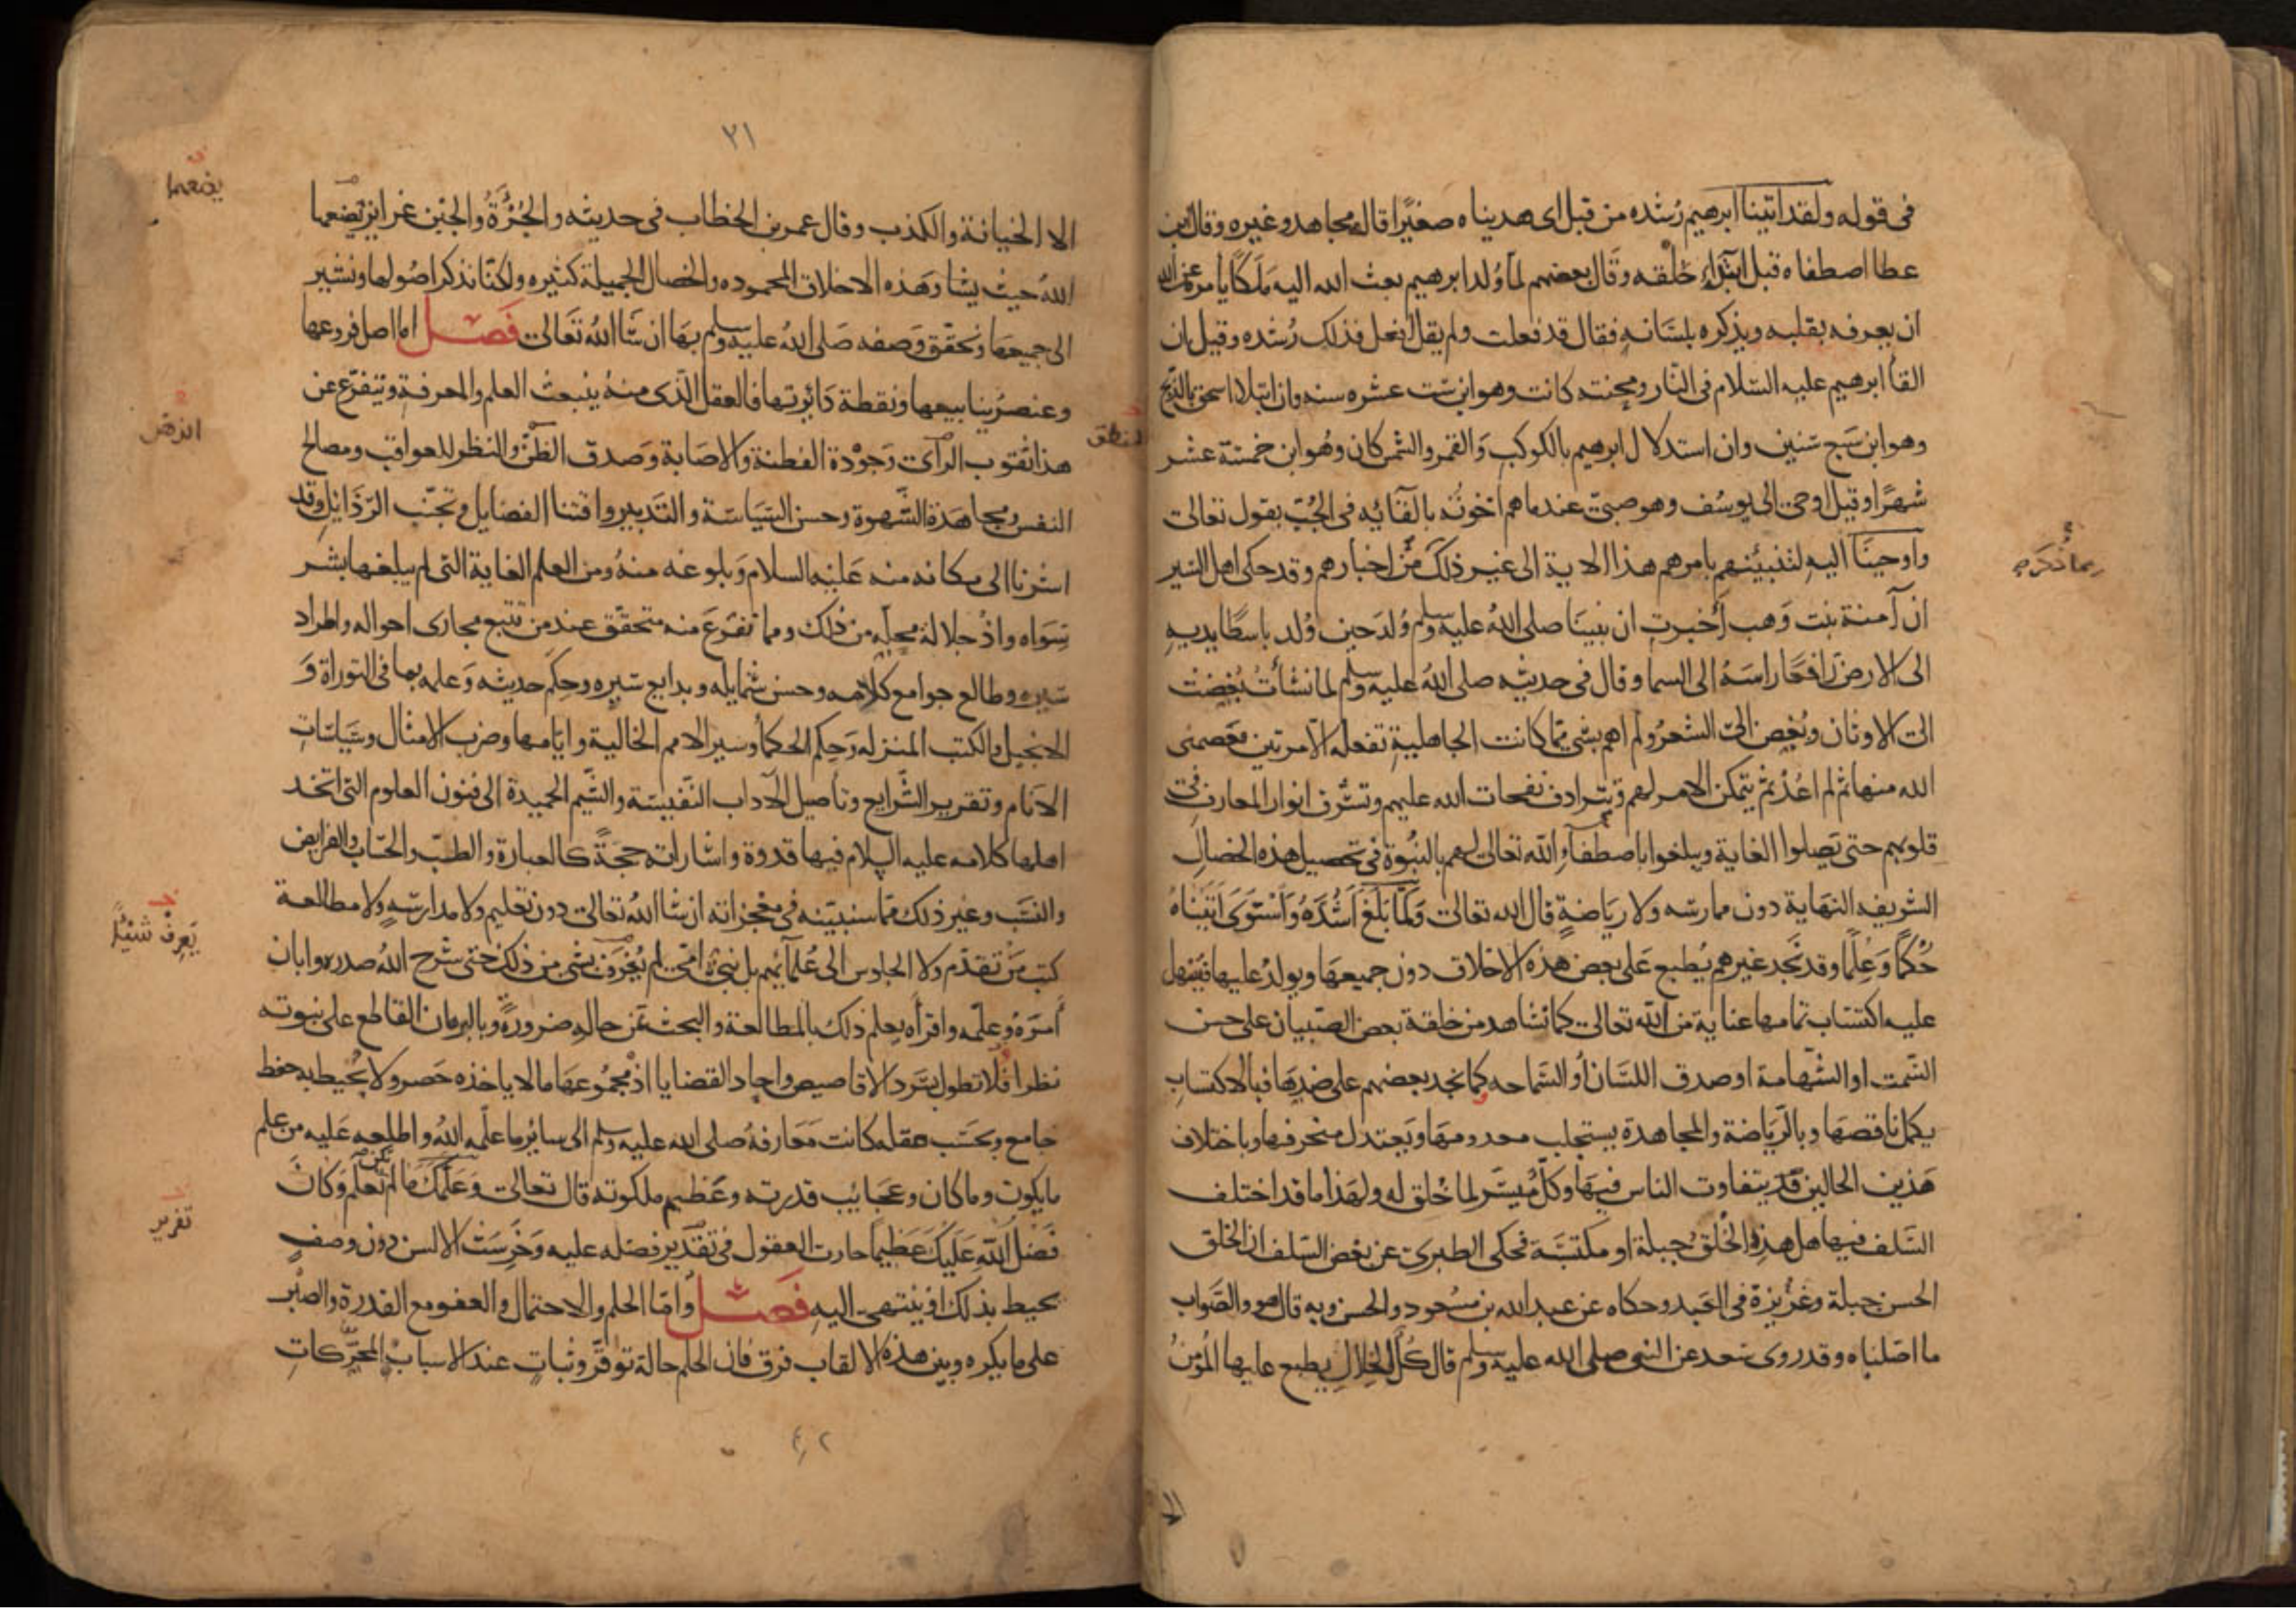 في قوله ولقد اتينا ابرهيم رُشده من قبل اى هديناه صغيرًا قاله مجاهد وغيره وقال ابن
عطا اصطفاه قبل ابتداءِ خلقه وقال بعضهم لما وُلد ابرهيم بعث الله اليه مَلَكًا يأمره عن الله
ان يعرفه بقلبه ويذكره بلسَانه فقال قد فعلت ولم يقل افعل فذلك رُشده وقيل ان
القأ ابرهيم عليه السّلام في النّار ومحنته كانت وهو ابن ستّ عشره سنه وان ابتلا اسحق بالذبح
وهو ابن سَبع سنين وان استدلال ابرهيم بالكوكب وَالقمر والشمس كان وهُو ابن خمسَة عشر
شهرًا وقيل اوحى الى يوسُف وهو صبىّ عند ما هم اخوته بالقآئه في الجُبّ بقول تعالى
واوحينَآ اليهِ لتنبئنهم بامرهم هذا الاية الى غير ذلك من اخبارهم وقد حكى اهل السّير
ان آمنة بنت وَهب أخبرت ان نبينَا صلى اللهُ عليه وسلم وُلدَ حين وُلد باسطًا يديهِ
الى الارض رَافعًا راسَهُ الى السما وقال في حديثه صلى اللهُ عليه وسلم لما نشأتُ بُغِضت
الىّ الاوثان وبُغِض الىّ الشعرُ ولم اهم بشىٍ ممّا كانت الجاهلية تفعله الّا مرتين فعَصَمنى
الله منها ثم لم اعُدْ ثم يتمكن الامر لهم وتترادف نفحات الله عليهم وتشرق انوار المعارف فى
قلوبهم حتى يَصِلوا الغاية ويبلغوا باصطفآءِ اللهِ تعالى لهم بالنبُوة في تحصيل هذه الخصال
الشريفه النهاية دون ممارسَه ولا ريَاضةٍ قال الله تعالى وَلَمَّا بَلَغَ اَشُدَّهُ وَاسْتَوَى آتَيْنَاهُ
حُكْمًا وَعِلْمًا وقد نَجد غيرهم يُطبع عَلى بعض هذه الاخلاق دون جميعهَا ويولدُ عليها فيَسْهل
عليه اكتسَاب تمامها عناية من الله تعالى كما نشاهد من خلقة بعض الصّبيان على حسن
السّمت او الشّهامة او صدق اللسَان أو السّماحه وكما نجد بعضهم على ضدِهَا فبالاكتسَاب
يكمل ناقصهَا وبالرّيَاضة والمجاهدة يستجلب معدومهَا ويَعتدل منحرفها وباختلاف
هَذين الحالين يتفاوت الناس فيهَا وكلّ مُيسّر لما خُلق له ولهَذا ما قد اختلف
السّلف فيها هل هذِه الخُلق جبلة او مكتسبَة فحكى الطبرى عن بعض السّلف ان الخلق
الحسن جبلة وغَرِيزة في العَبد وحكاه عن عبد الله بن مَسْعود والحسن وبه قال هو والصّواب
ما اصّلناه وقد روى سَعد عن النبى صلى الله عليه وسلم قال كُلّ الخلالِ يطبع عليها المُؤمنُ
ربما نُذكره
٢١
الا الخيانة والكذب وقال عمر بن الخطاب في حديثه والجُرْأَةُ والجبن غرايز يضعها
اللهُ حيث يشا وَهذه الاخلاق المحموده والخصال الجميلة كثيره ولكنّا نذكر اصُولها ونشير
الى جميعهَا ونحقق وَصفه صَلى اللهُ عليه وسلم بهَا ان شَا اللهُ تعَالى فَصْــل اما اصل فروعها
وعنصرُ ينابيعها ونقطة دَائرتها فالعقل الّذى منهُ ينبعث العلم والمعرفة ويتفرّع عن
هذا ثقوب الرّأى وَجَوْدة الفطنة والاصَابة وَصدق الظنّ والنظر للعواقب ومصالح
النفس ومجاهَدَة الشّهوة وحسن السّيَاسَة والتّدبير واقتنا الفضايل وتجنّب الرّذايل وقد
اشرْنا الى مكانه منه عَليْه السلام وَبلوغه منهُ ومن العلم الغاية التى لم يبلغها بشر
سِوَاه واذْ جلالة محِله من ذلك ومما تفرّعَ منه متحقّق عند من تتبع مجارى احواله واطراد
سيره وطالع جوامع كلامه وحسن شمايله وبدايع سيره وحِكَم حديثه وَعلمه بما في التوراة وَ
الانجيل والكتب المنزله وَحِكم الحكمأ وسير الامم الخالية وايّامها وضرب الامثال وسيَاسَاتِ
الانَام وتقرير الشّرايع وتاصيل الآداب النّفيسَة والشّيم الحميدة الى فنون العلوم التى اتخذ
اهلها كلامه عليه السلام فيها قدوة واشاراته حجةً كالعبارة والطبّ والحسَاب والفرايض
والنسَب وغير ذلك ممّا سنبيّنه في معْجزاته ان شا اللهُ تعالى دون تعليم ولا مدارسَهٍ ولا مطالعة
كتب مَنْ تقدّم ولا الجلوس الى عُلمآئهم بل نبىّ امىّ لم يُعْرف بشى من ذلك حتى شرح اللهُ صدره وابان
أمرَهُ وعلّمه واقرأه يعلم ذلك بالمطالعة والبحث عن حالهِ ضرورةً وبالبرهان القاطع على نبوته
نظرا فلا نطول بسَرد الاقاصيص واحاد القضايا اذ مجمُوعهَا ما لا ياخذه حَصر ولا يُحيط به حفظ
جامع وبحَسَب عقله كانت مَعَارفهُ صلى الله عليه وسلم الى ساير ما علّمه اللهُ واطلعه عَليه من علم
ما يكون وما كان وعجَايب قدرته وعَظيم ملكوته قال تعالى وَعَلَّمَكَ مَا لَمْ تكن تعْلَمُ وَكَانَ
فَضْلُ اللهِ عَلَيْكَ عَظِيمًا حارت العقول في تقدير فضله عليه وَخَرِسَت الالسن دون وصفٍ
يحيط بذلك او ينتهى اليهِ فَصــل وأمّا الحلم والاحتمال والعفو مع القدرة والصبْر
على ما يكره وبين هذه الالقاب فرق فان الحلم حالة توقّر وثباتٍ عند الاسباب المحرّكاتِ
يضعها
المنطق
يَعرِفْ شيئًا